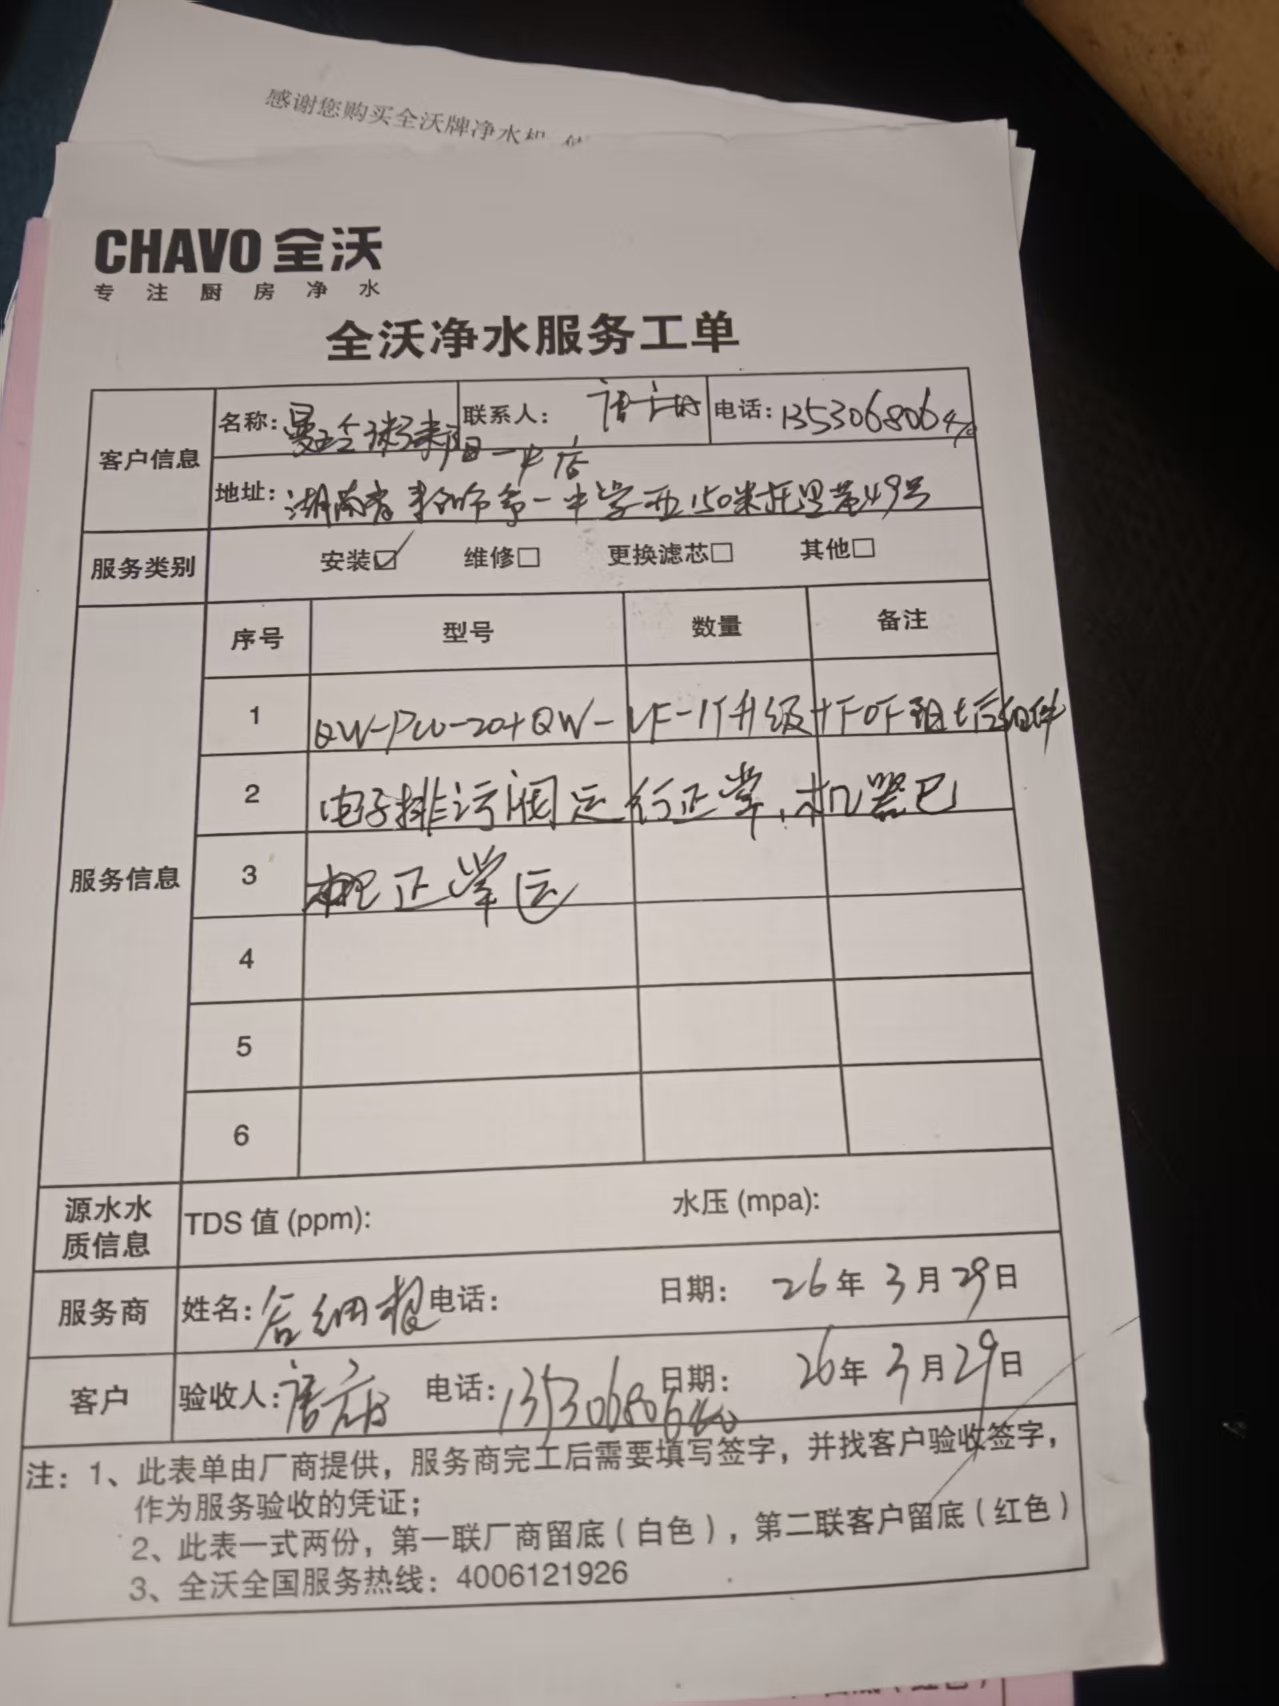 感谢您购买全沃牌净水机
CHAVO 全沃
专注厨房净水
全沃净水服务工单
客户信息 名称: 曼玲粥耒阳一中店 联系人: 电话: 135306806
地址: 湖南省耒阳市第一中学西150米 49号
服务类别 安装☑ 维修□ 更换滤芯□ 其他□
服务信息 序号 型号 数量 备注
1 QW-PW-20+QW-UF-1T升级+FOF阻 后组件
2 电子排污阀运行正常,机器已
3 正常运
4
5
6
源水水质信息 TDS 值 (ppm): 水压 (mpa):
服务商 姓名: 电话: 日期: 26年 3月 29日
客户 验收人: 唐 电话: 135306806 日期: 26年 3月 29日
注: 1、此表单由厂商提供，服务商完工后需要填写签字，并找客户验收签字，
作为服务验收的凭证；
2、此表一式两份，第一联厂商留底（白色），第二联客户留底（红色）
3、全沃全国服务热线: 4006121926